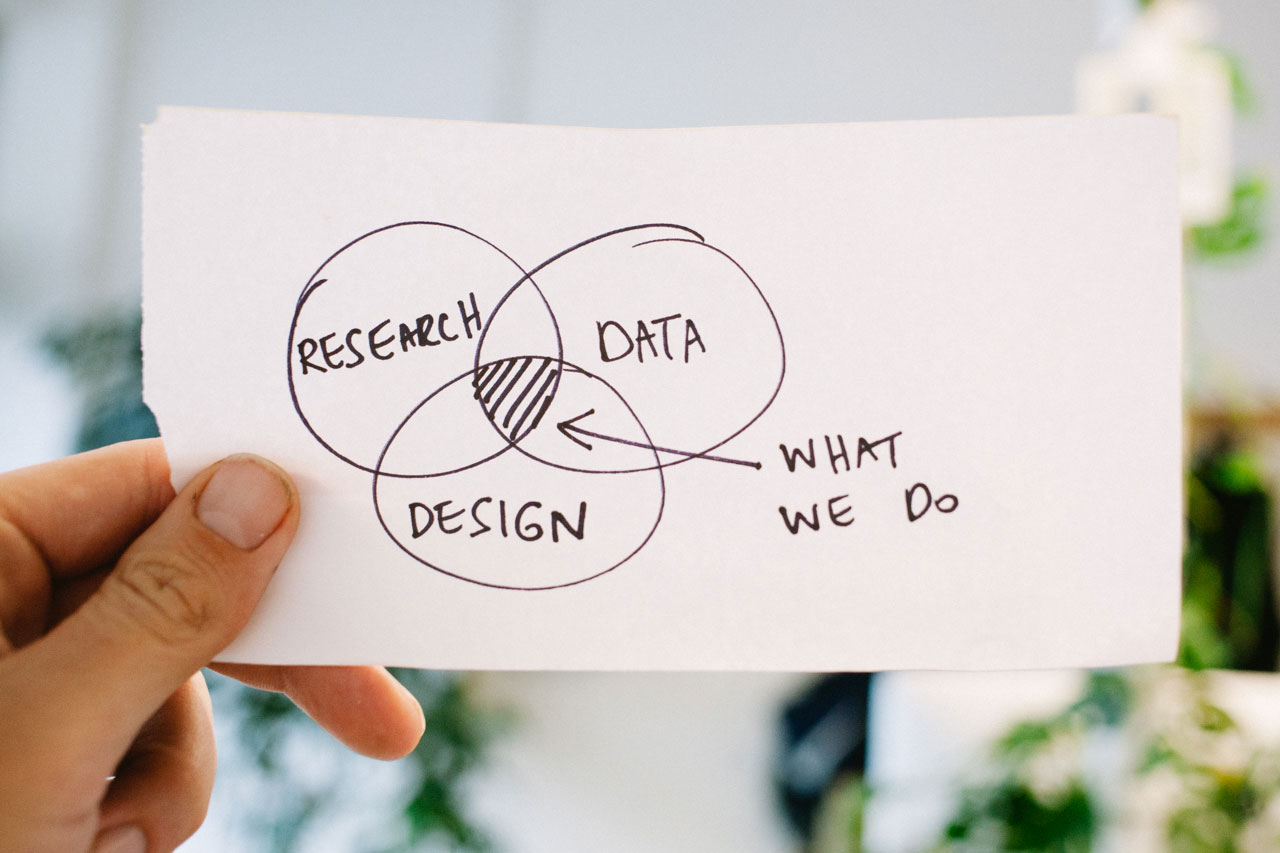 RESEARCH
DATA
DESIGN
WHAT
WE Do